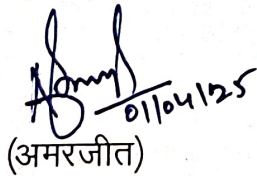 01/04/25
(अमरजीत)